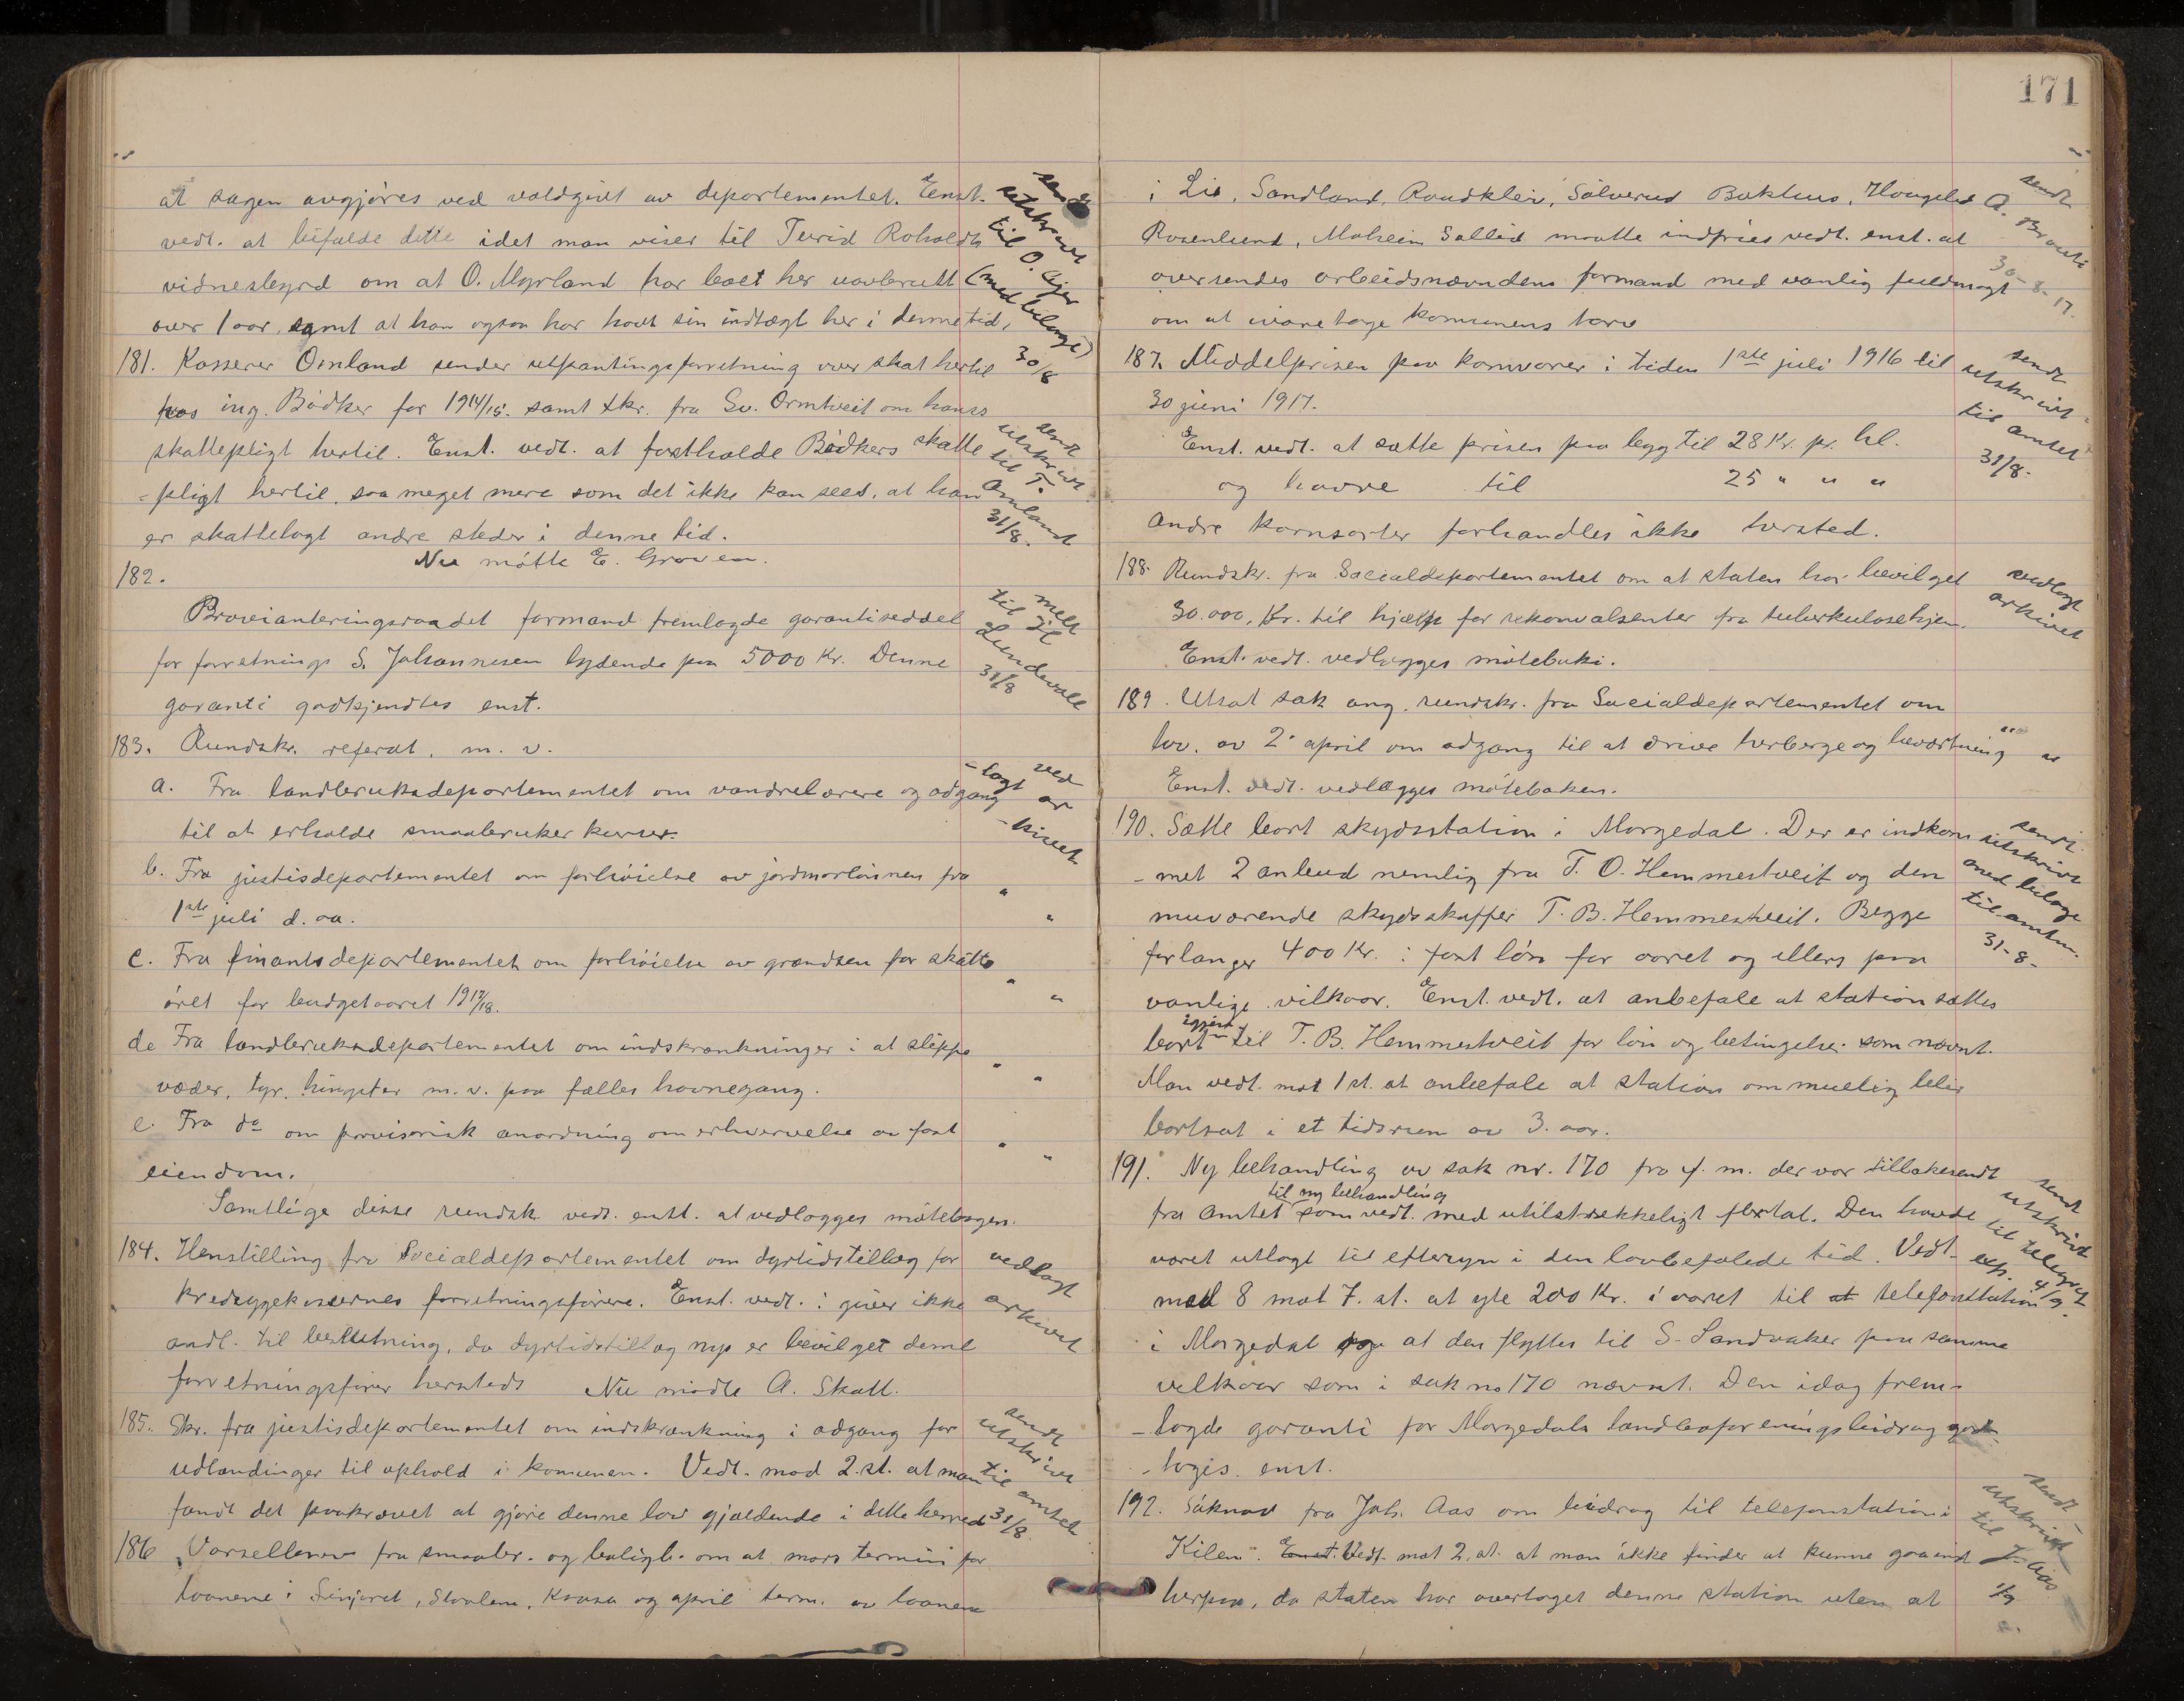 at sagen avgjöres ved voldgivt av departementet. Enst.
vedt. at bifalde dette idet man viser til Turid Roholdts
vidnesbyrd om at O. Myrland har boet her uavbrutt
over 1 aar, samt at han ogsaa har havt sin indtægt her i denne tid,
sendt utskrivt til O. (med bilage) 30/8
181. Kasserer Omland sender utpantingsforretning over skat hertil
hos ing. Bödker for 1914/15. samt skr. fra Sv. Ormtveit om hans
skattepligt hertil. Enst. vedt. at fastholde Bödkers skatte
-pligt hertil, saa meget mere som det ikke kan sees, at han
er skattelagt andre steder i denne tid.
sendt utskrivt til T. Omland 31/8.
Nu mötte E. Groven.
182.
Provianteringsraadet formand fremlagde garantiseddel
for forretnings S. Johannesen lydende paa 5000 Kr. Denne
garanti godkjendtes enst.
melt til Lundevall 31/8
183. Rundskr. referat. m. v.
a. Fra landbruksdepartementet om vandrelærere og adgang
til at erholde smaabruker kurser.
ved -lagt ar -kivet
b. Fra justisdepartementet om forhöielse av jordmorlönnen fra
1ste juli d. aa.
" "
c. Fra finantsdepartementet om forhöielse av grændsen for skatte
öret for budgetaaret 1917/18.
" "
de Fra landbruksdepartementet om indskrænkninger i at slippe
væder, tyr, hingster m. v. paa fælles havnegang.
" "
e. Fra do om provisorisk anordning om erhvervelse av fast
eiendom.
" "
Samtlige disse rundsk. vedt. enst. at vedlægges mötebogen.
184. Henstilling fra Socialdepartementet om dyrtidstillæg for
kredssygekassernes forretningsförere. Enst. vedt.: giver ikke
andl. til beslutning, da dyrtidstillæg nys er bevilget deme
forretningsförer hersteds Nu mödte A. Skatt.
vedlagt arkivet
185. Skr. fra justisdepartementet om indskrænkning i adgang for
utlændinger til ophold i komunen. Vedt. mod 2.st. at man
fandt det paakrævet at gjöre denne lov gjældende i dette herred
sendt utskrivt til amtet 31/8.
186 Varsellever fra smaabr. og boligb. om at mars termin for
laanene i , Stoolem, og april term. av laanene
171
i Lio, Sandland, Raudkleiv, Sölverud Bakhus,
Rosenlund, maatte indfries vedt. enst. at
oversendes arbeidsnævndens formand med vanlig fuldmagt
om at ivaretage komunens tarv
sendt A. 30-8-17.
187. Middelprisen paa kornvarer i tiden 1ste juli 1916 til
30 juni 1917.
Enst. vedt. at sætte prisen paa bygg til 28 Kr. pr. hl.
og havre til 25 " " "
Andre kornsorter forhandles ikke hersted.
sendt utskrivt til amtet 31/8.
188. Rundskr. fra Socialdepartementet om at staten har bevilget
30.000, Kr. til hjælp for rekonvalsenter fra tuberkulosehjem.
Enst. vedt. vedlægges mötebuki.
vedlagt arkivet
189. Utsat sak ang. rundskr. fra Socialdepartementet om
lov. av 2. april om adgang til at drive herberge og bevertning
Enst. vedt. vedlægges mötebuken.
" "
190. Sætte bort skydsstation i Morgedal. Der er indkom
-met 2 anbud nemlig fra T. O. Hemmestveit og den
nuværende skydsskaffer T. B. Hemmestveit. Begge
forlanger 400 Kr. i fast lön for aaret og ellers paa
vanlige vilkaar. Enst. vedt. at anbefale at station sættes
bort igjen til T. B. Hemmestveit for lön og betingelser som nævnt.
Man vedt. mot 1 st. at anbefale at station om mulig blir
bortsat i et tidsrum av 3. aar.
sendt utskrivt med bilage til amtm. 31-8-
191. Ny behandling av sak nr. 170 fra f. m. der var tilbakesendt
fra Amtet til ny behandling som vedt. med utilstrækkeligt flertal. Den havde
været utlagt til eftersyn i den lovbefalede tid. Vedt.
med 8 mot 7. st. at yte 200 Kr. i aaret til at telefonstation
i Morgedal og at den flyttes til S. Sandvaker paa samme
vilkaar som i sak no 170 nævnt. Den idag frem-
-lagde garanti for Morgedals landhandforeningsbidrag god-
-toges. enst.
sendt utskrivt til telegraf 4/9.
192. Söknad fra Joh. Aas om bidrag til telefonstation i
Kilen". Enst. Vedt. mot 2. st. at man ikke finder at kunne gaa ind
herpaa, da staten har overtaget denne station uten at
sendt utskrivt til J. Aas 1/9